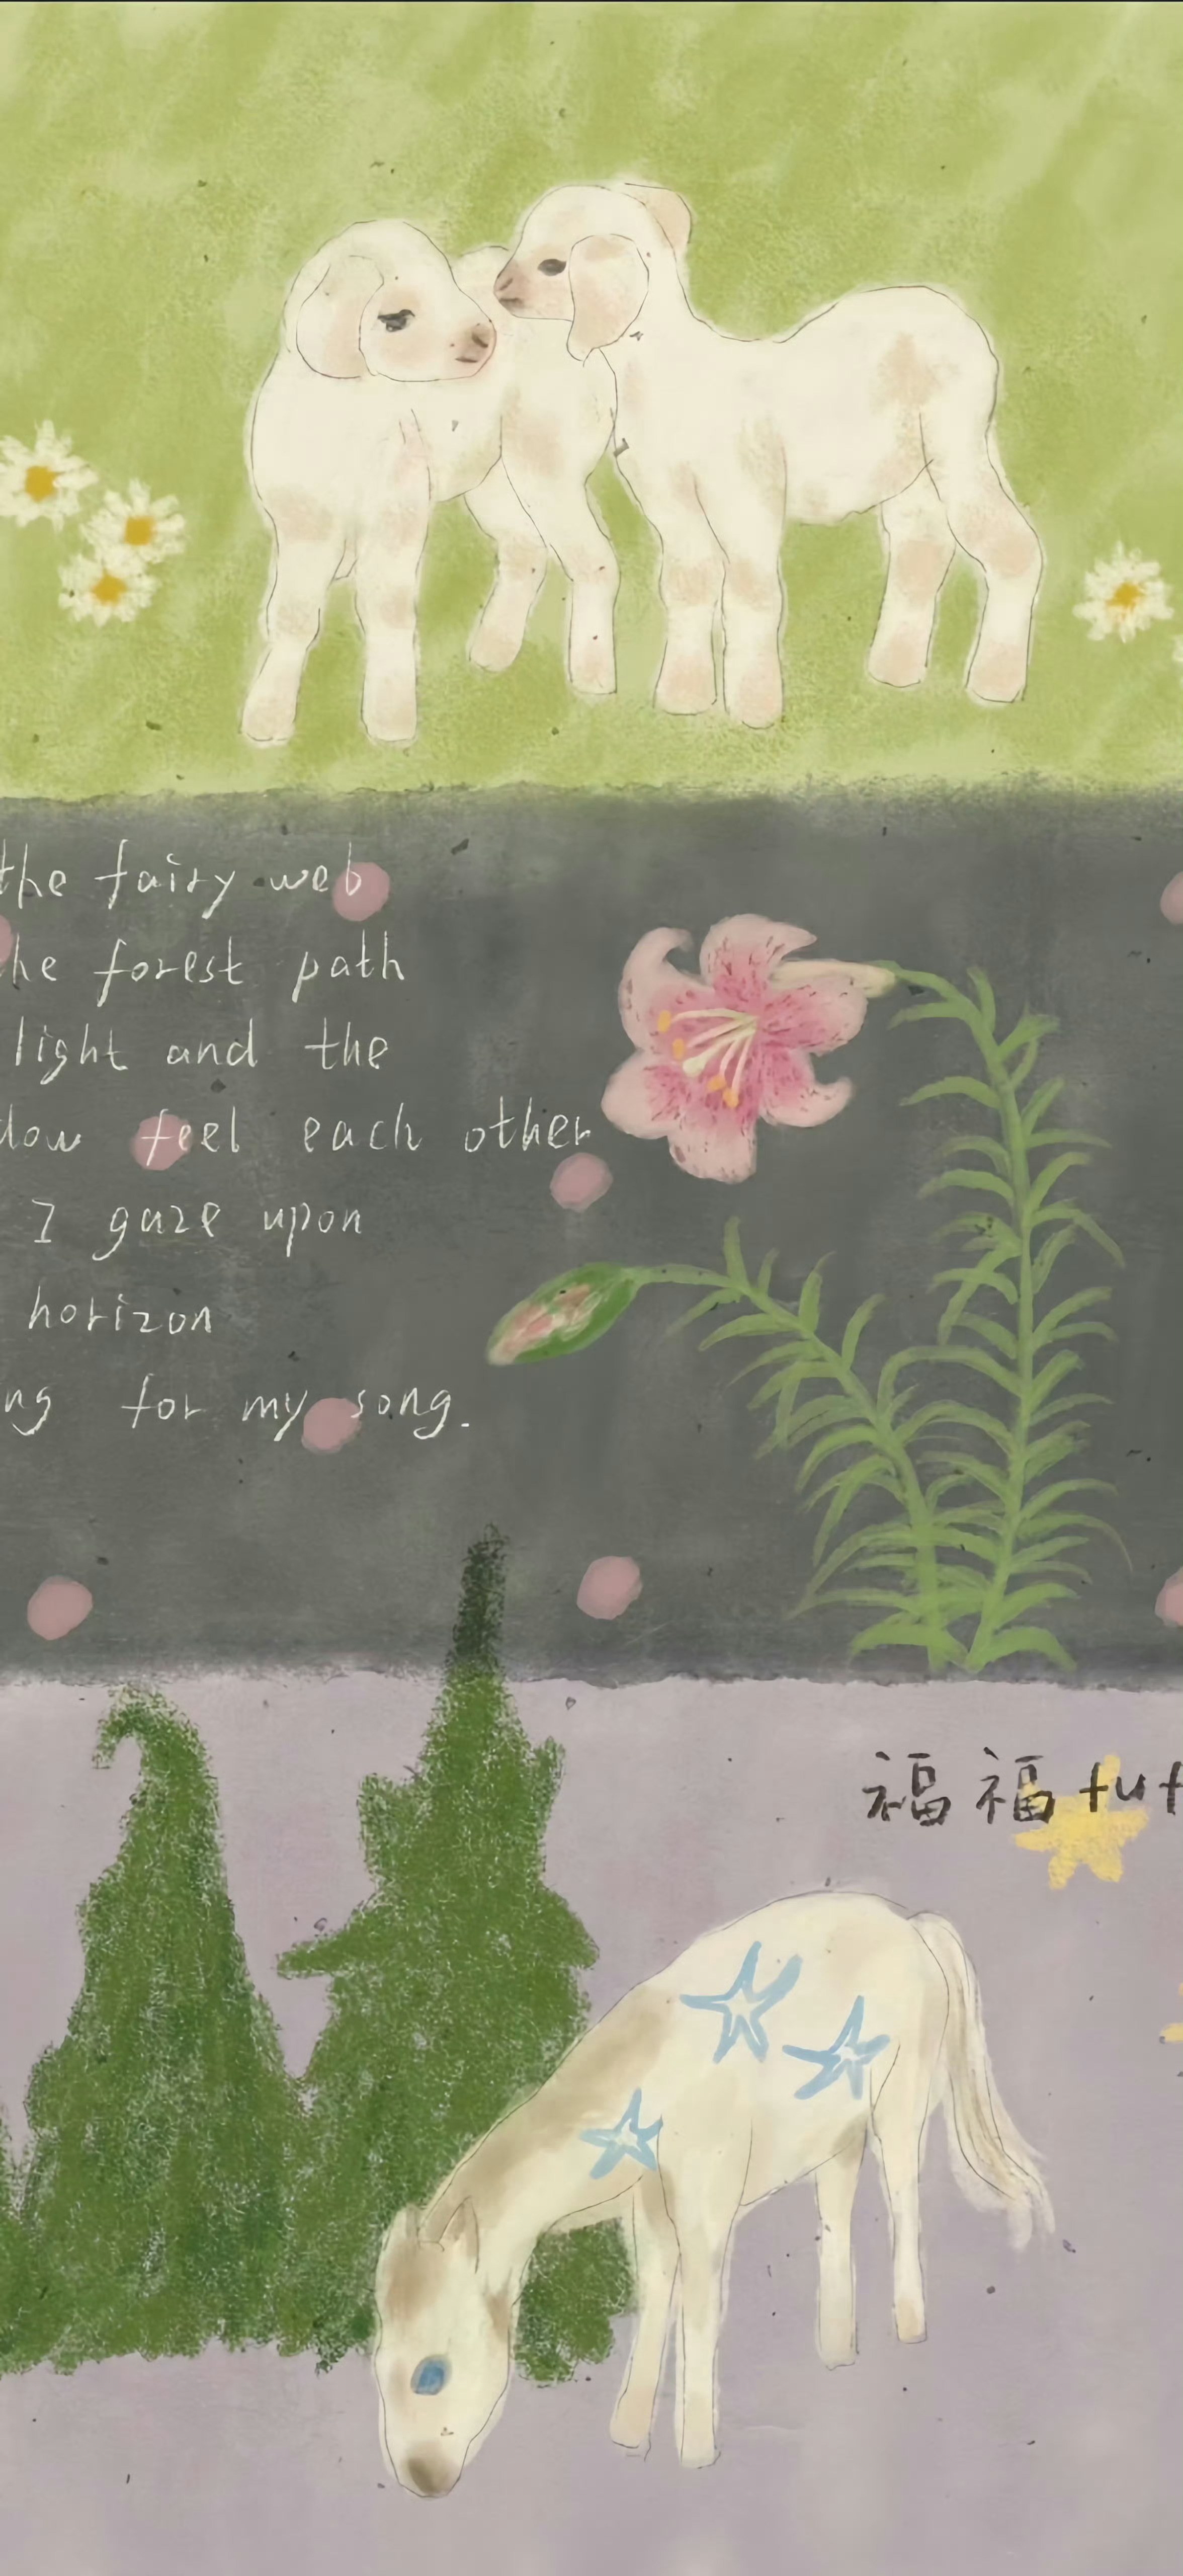 the fairy web
he forest path
light and the
dow feel each other
I gaze upon
horizon
ng for my song.
福福fuf